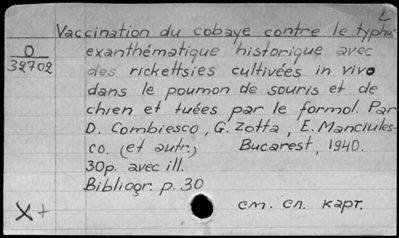 L
Vaccination du cobaye contre le typhus
O
32702
exanthématique historique avec
des rickettsies cultivées in vivo
dans le poumon de souris et de
chien et tuées par le formol. Par
D. Combiesco, G. Zotta, E. Manciules-
co. (et autr.) Bucarest, 1940.
30p. avec ill.
Bibliogr. p. 30
X +
см. сл. карт.